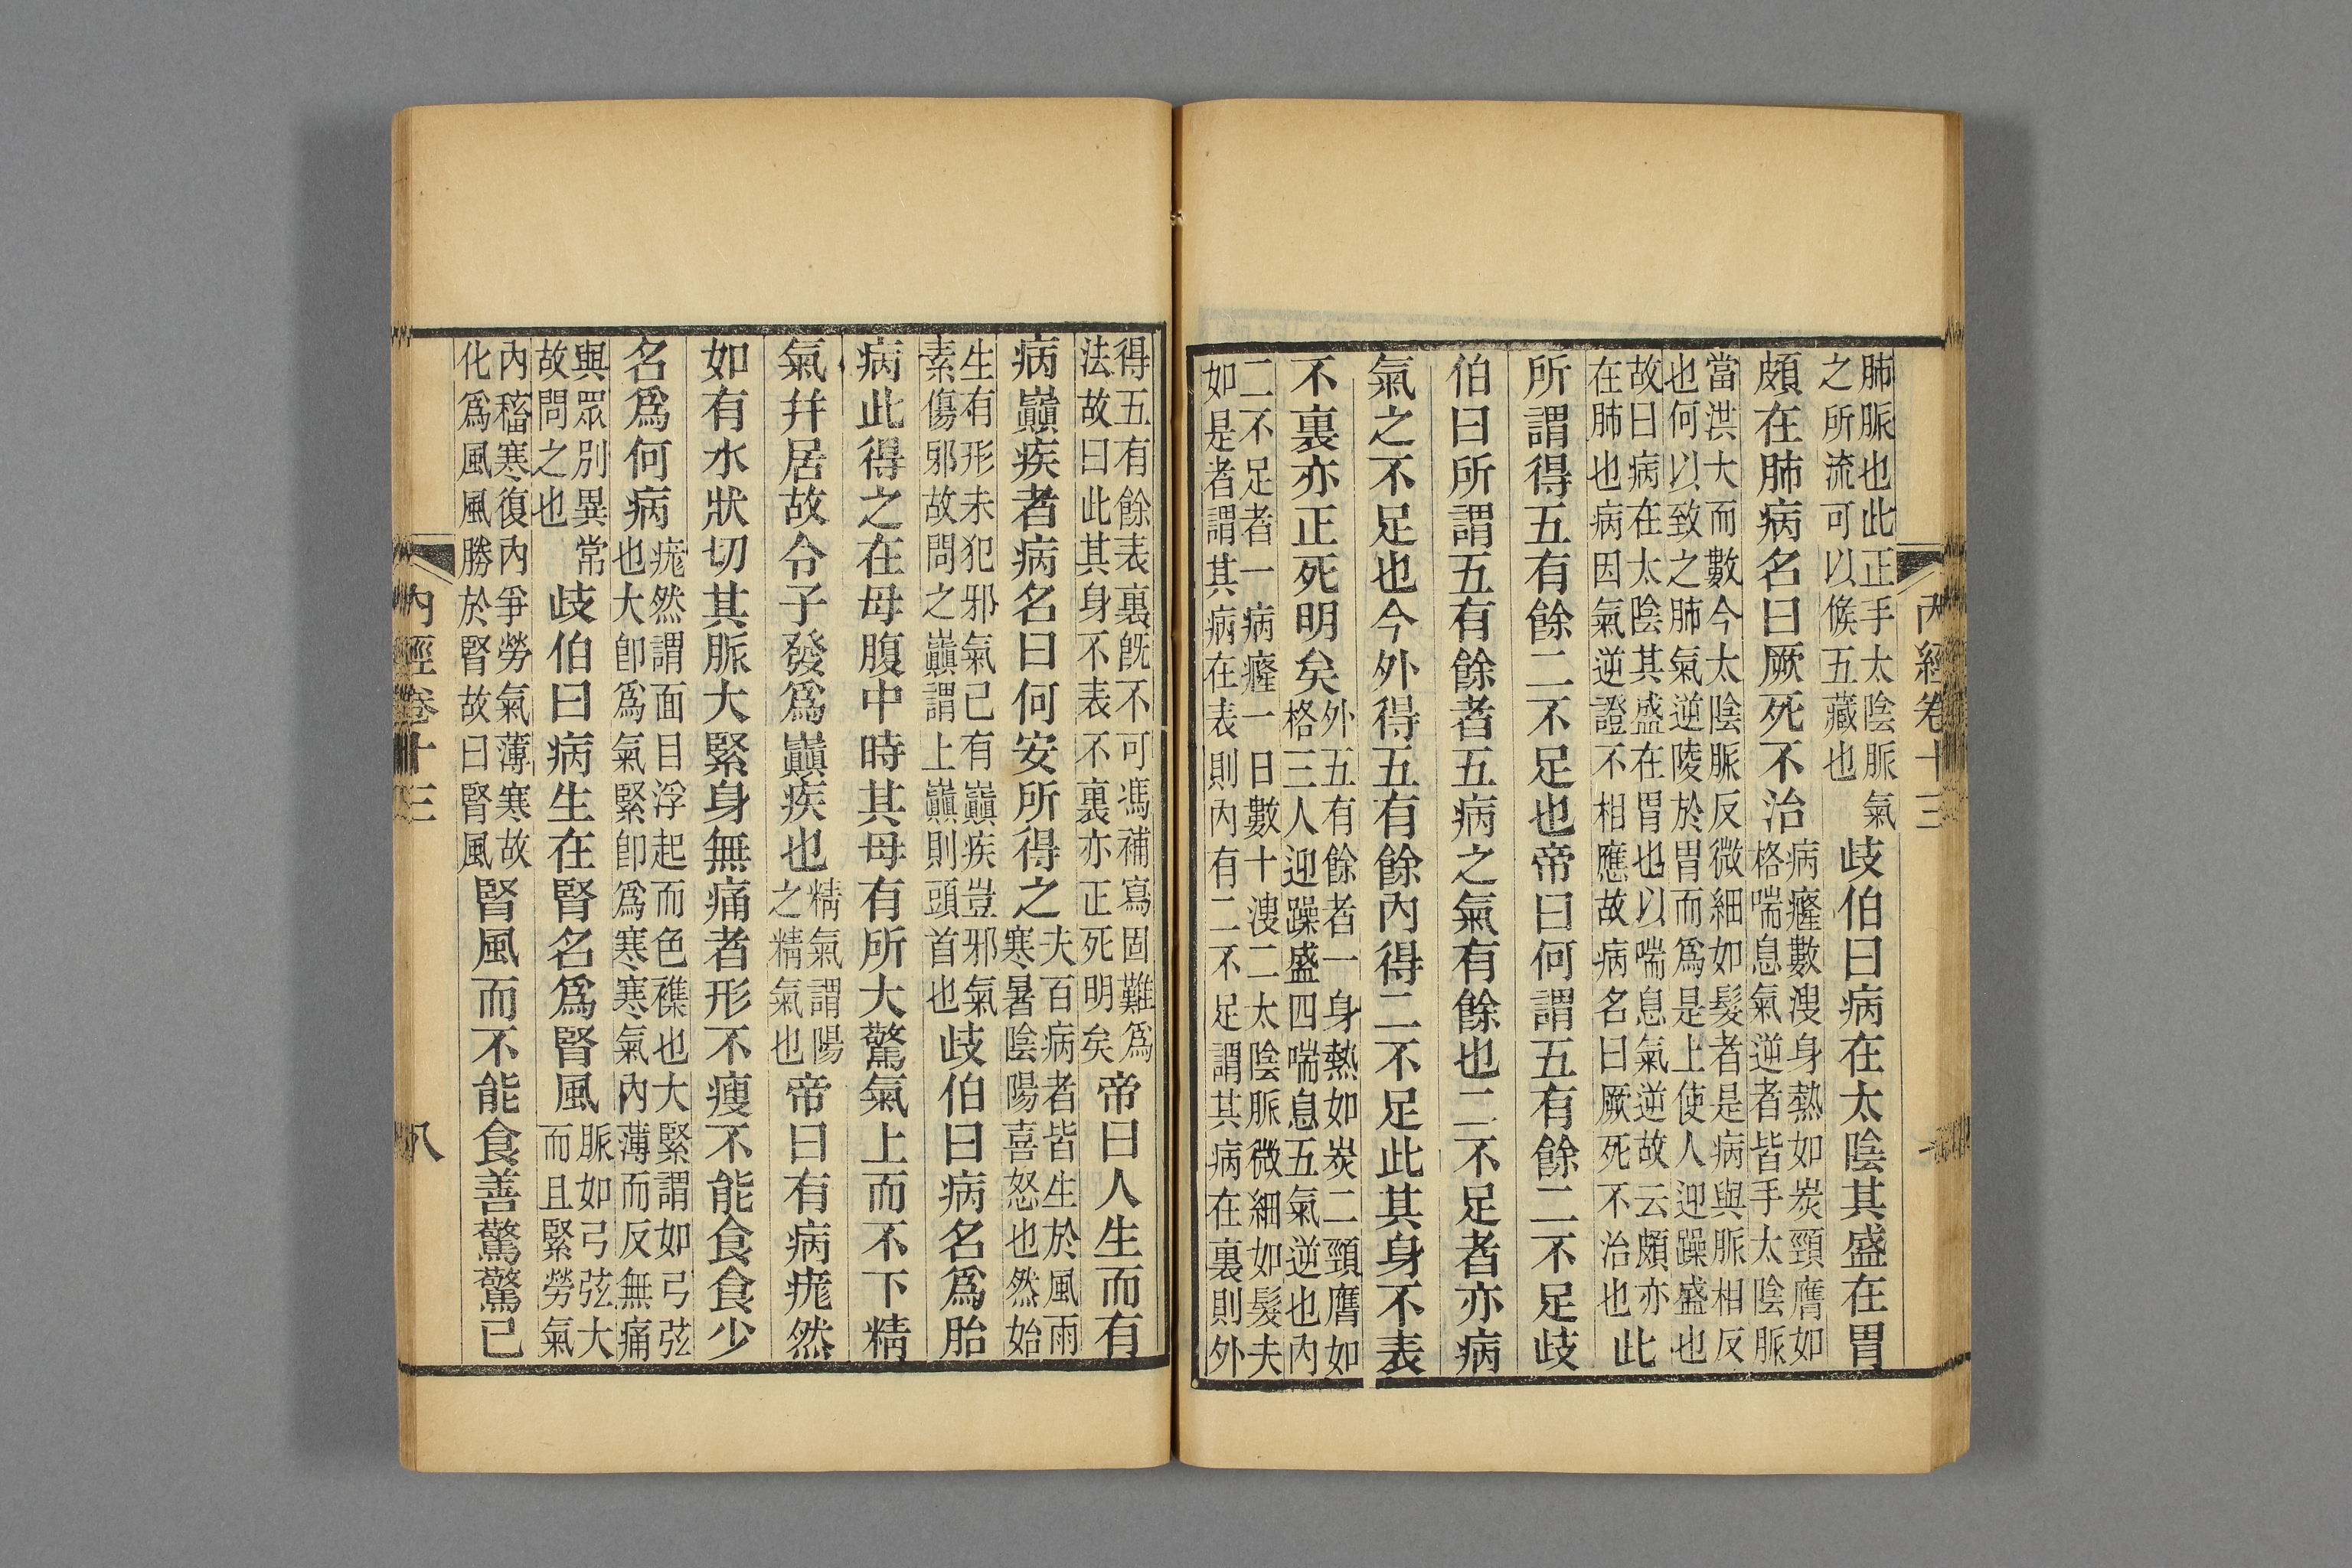 內經卷十三
肺脈也此正手太陰脈氣之所流可以候五藏也歧伯曰病在太陰其盛在胃
頗在肺病名曰厥死不治病癃數溲身熱如炭頸膺如格喘息氣逆者皆手太陰脈
當洪大而數今太陰脈反微細如髮者是病與脈相反也何以致之肺氣逆陵於胃而爲是上使人迎躁盛也
故曰病在太陰其盛在胃也以喘息氣逆故云頗亦在肺也病因氣逆證不相應故病名曰厥死不治也此
所謂得五有餘二不足也帝曰何謂五有餘二不足歧
伯曰所謂五有餘者五病之氣有餘也二不足者亦病
氣之不足也今外得五有餘內得二不足此其身不表
不裏亦正死明矣外五有餘者一身熱如炭二頸膺如格三人迎躁盛四喘息五氣逆也內
二不足者一病癃一日數十溲二太陰脈微細如髮夫如是者謂其病在表則內有二不足謂其病在裏則外
得五有餘表裏既不可馮補寫固難爲法故曰此其身不表不裏亦正死明矣帝曰人生而有
病巔疾者病名曰何安所得之夫百病者皆生於風雨寒暑陰陽喜怒也然始
生有形未犯邪氣已有巔疾豈邪氣素傷邪故問之巔謂上巔則頭首也歧伯曰病名爲胎
病此得之在母腹中時其母有所大驚氣上而不下精
氣并居故令子發爲巔疾也精氣謂陽之精氣也帝曰有病痝然
如有水狀切其脈大緊身無痛者形不瘦不能食食少
名爲何病痝然謂面目浮起而色襍也大緊謂如弓弦也大卽爲氣緊卽爲寒寒氣內薄而反無痛
與眾別異常故問之也歧伯曰病生在腎名爲腎風脈如弓弦大而且緊勞氣
內稸寒復內爭勞氣薄寒故化爲風風勝於腎故曰腎風腎風而不能食善驚驚已
內經卷十三
八